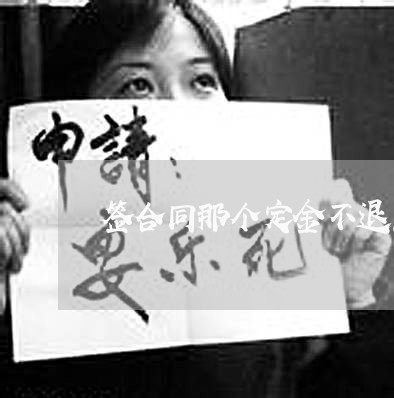 申請：
签合同那个定金不退
安乐死